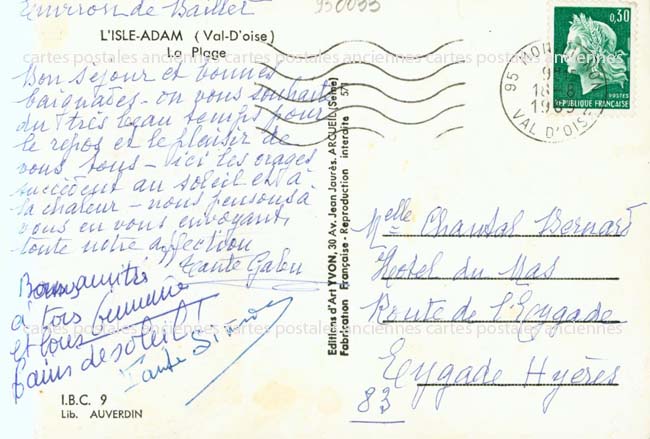 Environ de Baillet
950095
L'ISLE-ADAM (Val-D'oise)
La Plage
Bon séjour et bonnes
baignades - on vous souhaite
du très beau temps pour
le repos et le plaisir de
vous tous - ici les orages
succèdent au soleil et à
la chaleur - nous pensons à
vous en vous envoyant
toute notre affection
Tante
Bonnes amitiés
à tous
et bons
bains de soleil !
Tante Simone
I.B.C. 9
Lib. AUVERDIN
Editions d'Art YVON, 30 Av. Jean Jaurès. ARCUEIL (Seine)
Fabrication Française - Reproduction interdite 571
0,30
POSTES
RÉPUBLIQUE FRANÇAISE
95 MON
18-8
VAL D'OISE
Melle Chantal Bernard
Hotel du Mas
Route de l'Eygade
Eygade Hyères
83
cartes postales anciennes cartes postales anciennes cartes postales anciennes
cartes postales anciennes cartes postales anciennes cartes postales anciennes